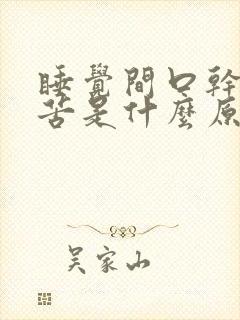 睡覺間口幹
苦是什麼原
吴家山